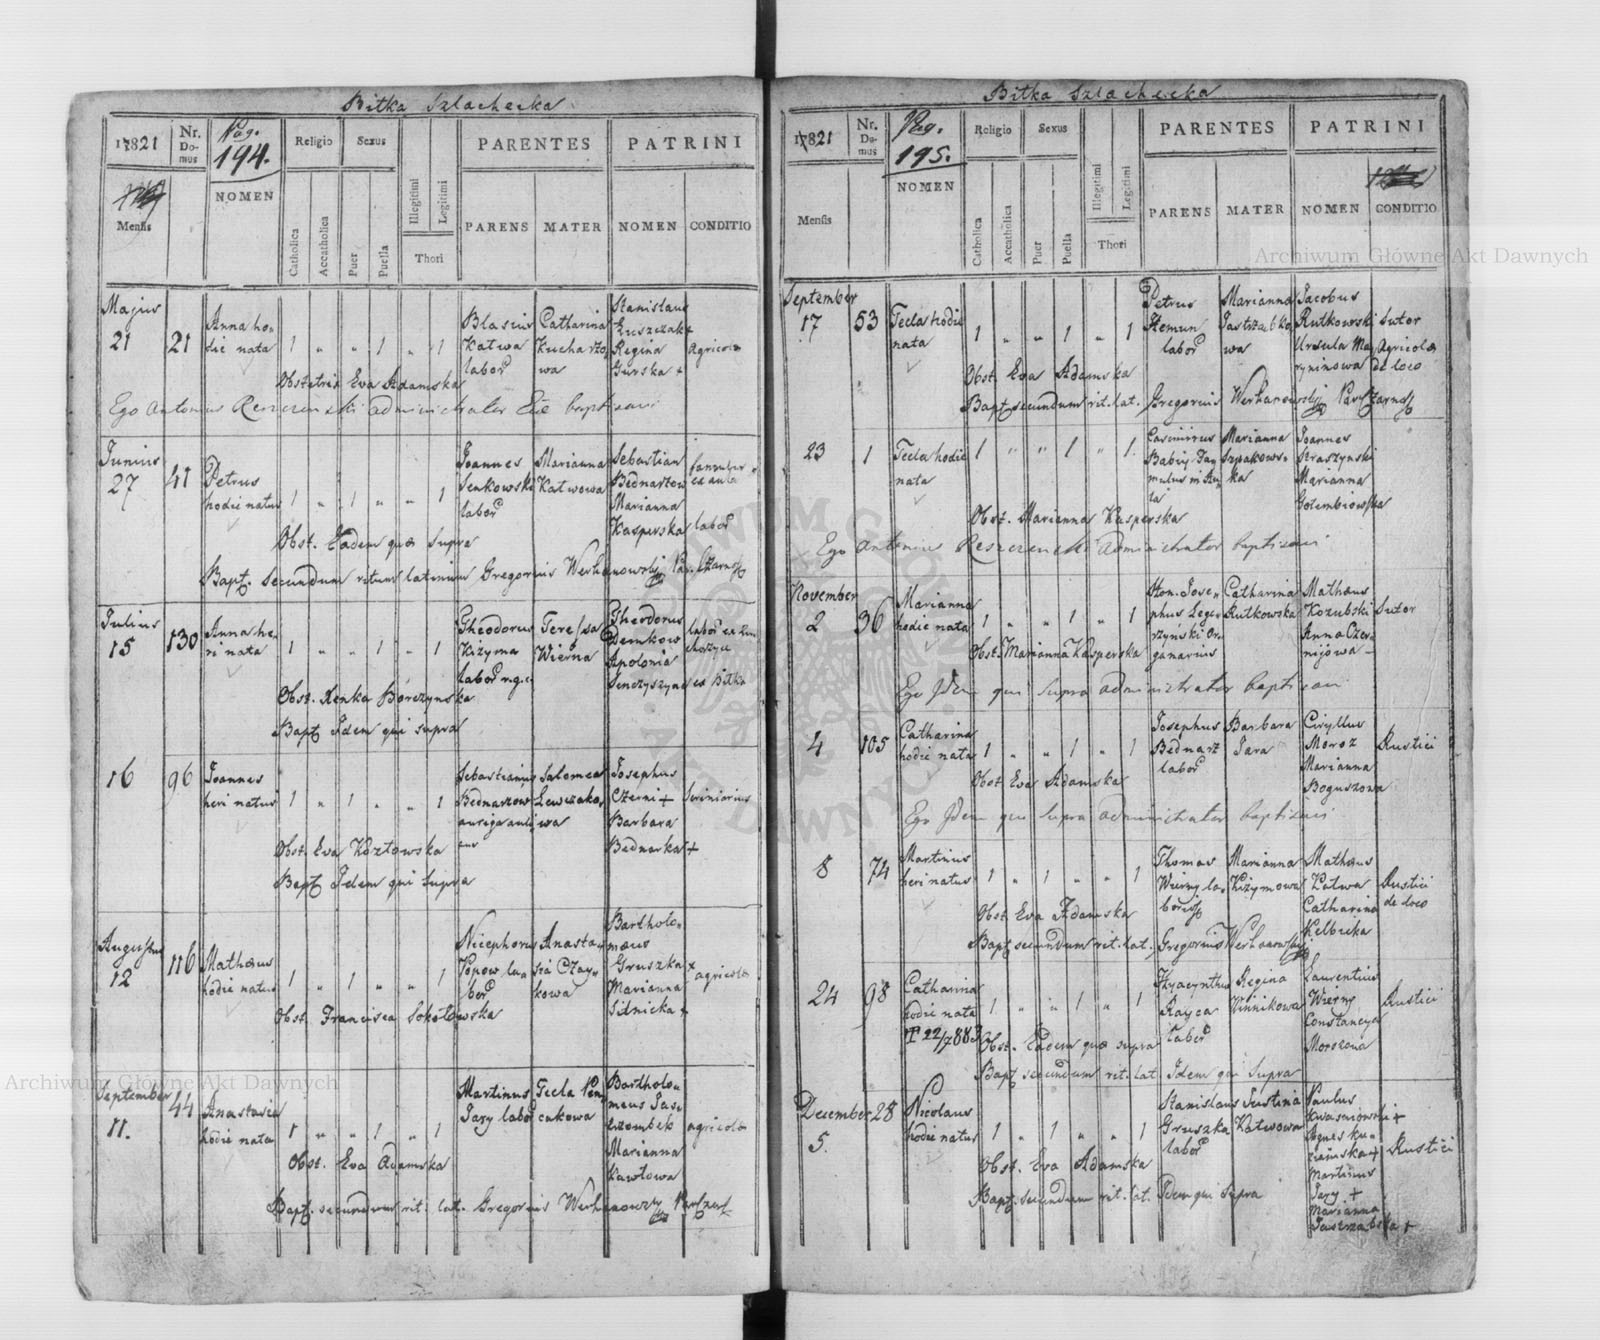 Bitka Szlachecka
1821
Nr. Do- mus
Pag. 194.
Religio
Sexus
Illegitimi
Legitimi
PARENTES
PATRINI
Mensis
NOMEN
Catholica
Accatholica
Puer
Puella
Thori
PARENS
MATER
NOMEN
CONDITIO
Majus
21
21
Anna ho-
die nata
1 " " 1 " 1
Blasius
Katwa
labor
Catharina
Kucharzo
wa
Stanislaus
Łuszczak +
Regina
Gurska +
Agricolae
Obstetrix Eva Adamska
Ego Antonius Reszczenski administrator Ecc baptisavi
Junius
27
41
Petrus
hodie natus
1 " 1 " " 1
Joannes
Senkowski
labor
Marianna
Katwowa
Sebastian
Bednarzow
Marianna
Kasperska
famulus
ex aula
labor
Obst. Eadem quae supra
Bapt. secundum ritum latinum Gregorius Werhanowski Par. Czarn
Julius
15
130
Anna he-
ri nata
1 " " 1 " 1
Theodorus
Kizyma
labor r.g.c.
Teressa
Wierna
Theodorus
Demkow
Apolonia
Senczyszyna
labor ex
ex Bitka
Obst. Xenka Borczynska
Bapt Idem qui supra
16
96
Joannes
heri natus
1 " 1 " " 1
Sebastianus
Bednarzow
auriga auli
cus
Salomea
Lewczako
wa
Josephus
Czerni +
Barbara
Bednarka +
Scriniarius
Obst. Eva Kozłowska
Bapt Idem qui supra
Augustus
12
116
Mathaeus
hodie natus
1 " 1 " " 1
Nicephorus
Popow la-
bor
Anasta-
sia Czay-
kowa
Bartholo-
maeus
Gruszka +
Marianna
Sitnicka +
agricolae
Obst. Francisca Sokołowska
September
11.
44
Anastasia
hodie nata
1 " " 1 " 1
Martinus
Jary labor
Tecla Pen
cakowa
Bartholo-
meus Jas-
trzombek
Marianna
Kawłowa
agricolae
Obst. Eva Adamska
Bapt. secundum rit. lat. Gregorius Werhanowski Par Czar
Bitka Szlachecka
1821
Nr. Do- mus
Pag. 195.
Religio
Sexus
Illegitimi
Legitimi
PARENTES
PATRINI
Mensis
NOMEN
Catholica
Accatholica
Puer
Puella
Thori
PARENS
MATER
NOMEN
CONDITIO
September
17
53
Tecla hodie
nata
1 " " 1 " 1
Petrus
Hemun
labor
Marianna
Jastrzabko
wa
Jacobus
Rutkowski
Ursula Ma
ryninowa
Sutor
Agricolae
de loco
Obst. Eva Adamska
Bapt secundum rit. lat. Gregorius Werhanowski Par Czarn
23
1
Tecla hodie
nata
1 " " 1 " 1.
Casimirus
Babiy Fa-
mulus in Au-
la
Marianna
Szpakows-
ka
Joannes
Straszynski
Marianna
Gołembiowska
Obst. Marianna Kasperska
Ego Antonius Reszczenski administrator baptisavi
November
2
36
Marianna
hodie nata
1 " " 1 " 1
Hon. Jose-
phus Seger-
szyński Or-
ganarius
Catharina
Rutkowska
Mathaeus
Kozubski
Anna Czer-
nijowa
Sutor
Obst. Marianna Kasperska
Ego Idem qui supra administrator baptisavi
4
105
Catharina
hodie nata
1 " " 1 " 1
Josephus
Bednarz
labor
Barbara
Jara
Ciryllus
Moroz
Marianna
Boguszowa
Rustici
Obst Eva Adamska
Ego Idem qui supra administrator baptisavi
8
74
Martinus
heri natus
1 " 1 " " 1
Thomas
Wierny la-
boris
Marianna
Kizymowa
Mathaeus
Łatwa
Catharina
Kelbicka
Rustici
de loco
Obst Eva Adamska
Bapt secundum rit. lat. Gregorius Werhanowski
24
98
Catharina
hodie nata
† 22/7883
1 " " 1 " 1
Hyacynthus
Rayca
labor
Regina
Winnikowa
Laurentius
Wierny
Constancya
Morozowa
Rustici
Obst. Eadem quae supra
Bapt secundum rit. lat. Idem qui supra
December
5.
28
Nicolaus
hodie natus
1 " 1 " " 1
Stanislaus
Gruszka
labor
Justina
Katwowa
Paulus
Kwasniowski +
Agnes Ku-
+
Martinus
Jary +
Marianna
Jastrzabska +
Rustici
Obst. Eva Adamska
Bapt. secundum rit. lat. Idem qui supra
Archiwum Główne Akt Dawnych
Archiwum Główne Akt Dawnych
ARCHIWUM GŁÓWNE AKT DAWNYCH